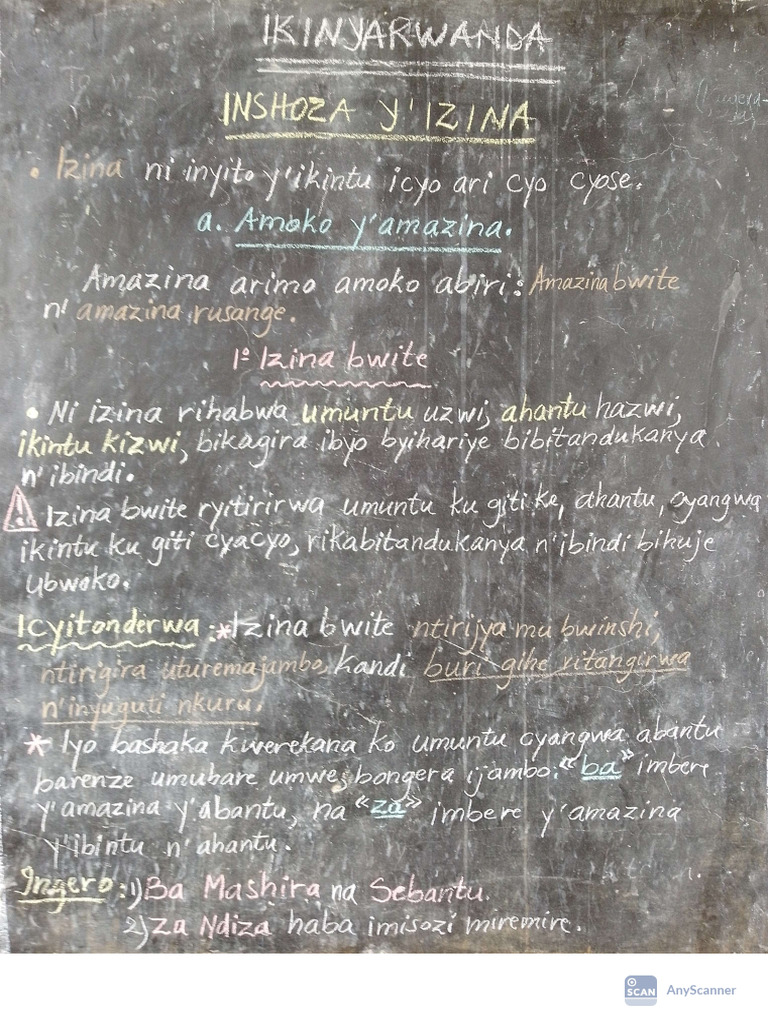 IKINYARWANDA
INSHOZA Y'IZINA
• Izina ni inyito y'ikintu icyo ari cyo cyose.
a. Amoko y'amazina.
Amazina arimo amoko abiri: Amazina bwite
n' amazina rusange.
1º Izina bwite
• Ni izina rihabwa umuntu uzwi, ahantu hazwi,
ikintu kizwi, bikagira ibyo byihariye bibitandukanya
n'ibindi.
Izina bwite ryitirirwa umuntu ku giti ke, ahantu, cyangwa
ikintu ku giti cyacyo, rikabitandukanya n'ibindi bihuje
ubwoko.
Icyitonderwa: *Izina bwite ntirijya mu bwinshi,
ntirigira uturemajambo, kandi buri gihe ritangirwa
n'inyuguti nkuru.
* Iyo bashaka kwerekana ko umuntu cyangwa abantu
barenze umubare umwe, bongera ijambo: "ba" imbere
y'amazina y'abantu, na "za" imbere y'amazina
y'ibintu n'ahantu.
Ingero: 1) Ba Mashira na Sebantu.
2) Za Ndiza haba imisozi miremire.
SCAN AnyScanner